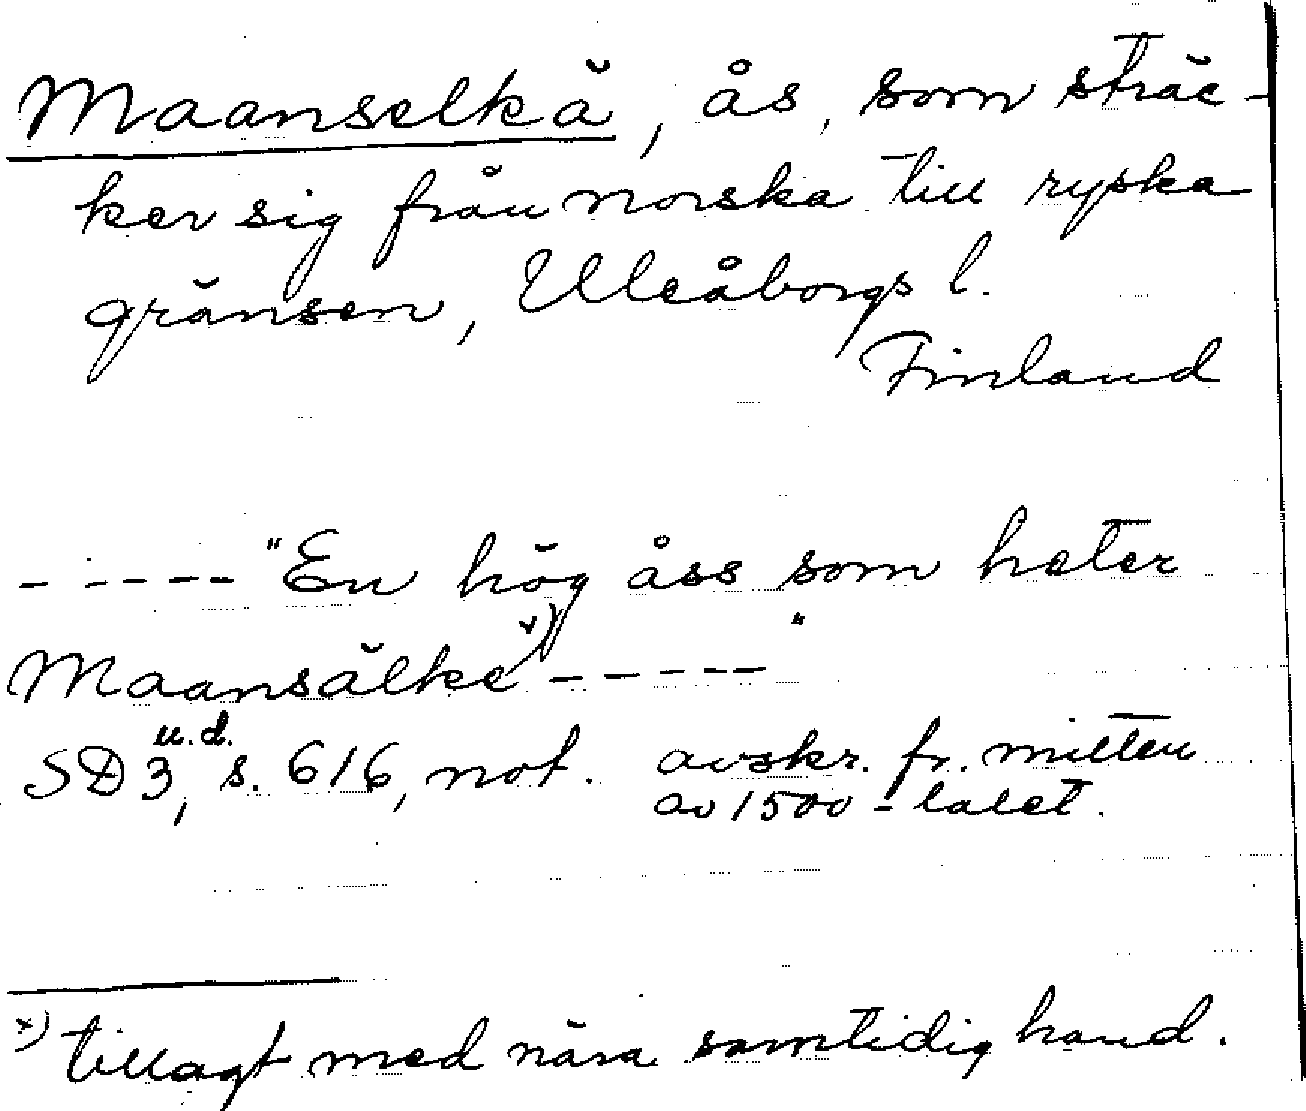 Maanselkä, ås, som sträc-
ker sig från norska till ryska
gränsen, Uleåborgs l.
Finland
- - - - - "En hög åss som heter
Maansälke x) - - - - - "
SD 3 u.d., s. 616, not. avskr. fr. mitten
av 1500-talet.
x) tillagt med nära samtidig hand.